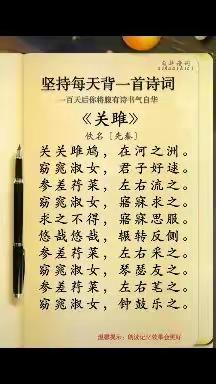 坚持每天背一首诗词
一百天后你将腹有诗书气自华
《关雎》
佚名［先秦］
关关雎鸠，在河之洲。
窈窕淑女，君子好逑。
参差荇菜，左右流之。
窈窕淑女，寤寐求之。
求之不得，寤寐思服。
悠哉悠哉，辗转反侧。
参差荇菜，左右采之。
窈窕淑女，琴瑟友之。
参差荇菜，左右芼之。
窈窕淑女，钟鼓乐之。
温馨提示：朗读记忆效果会更好